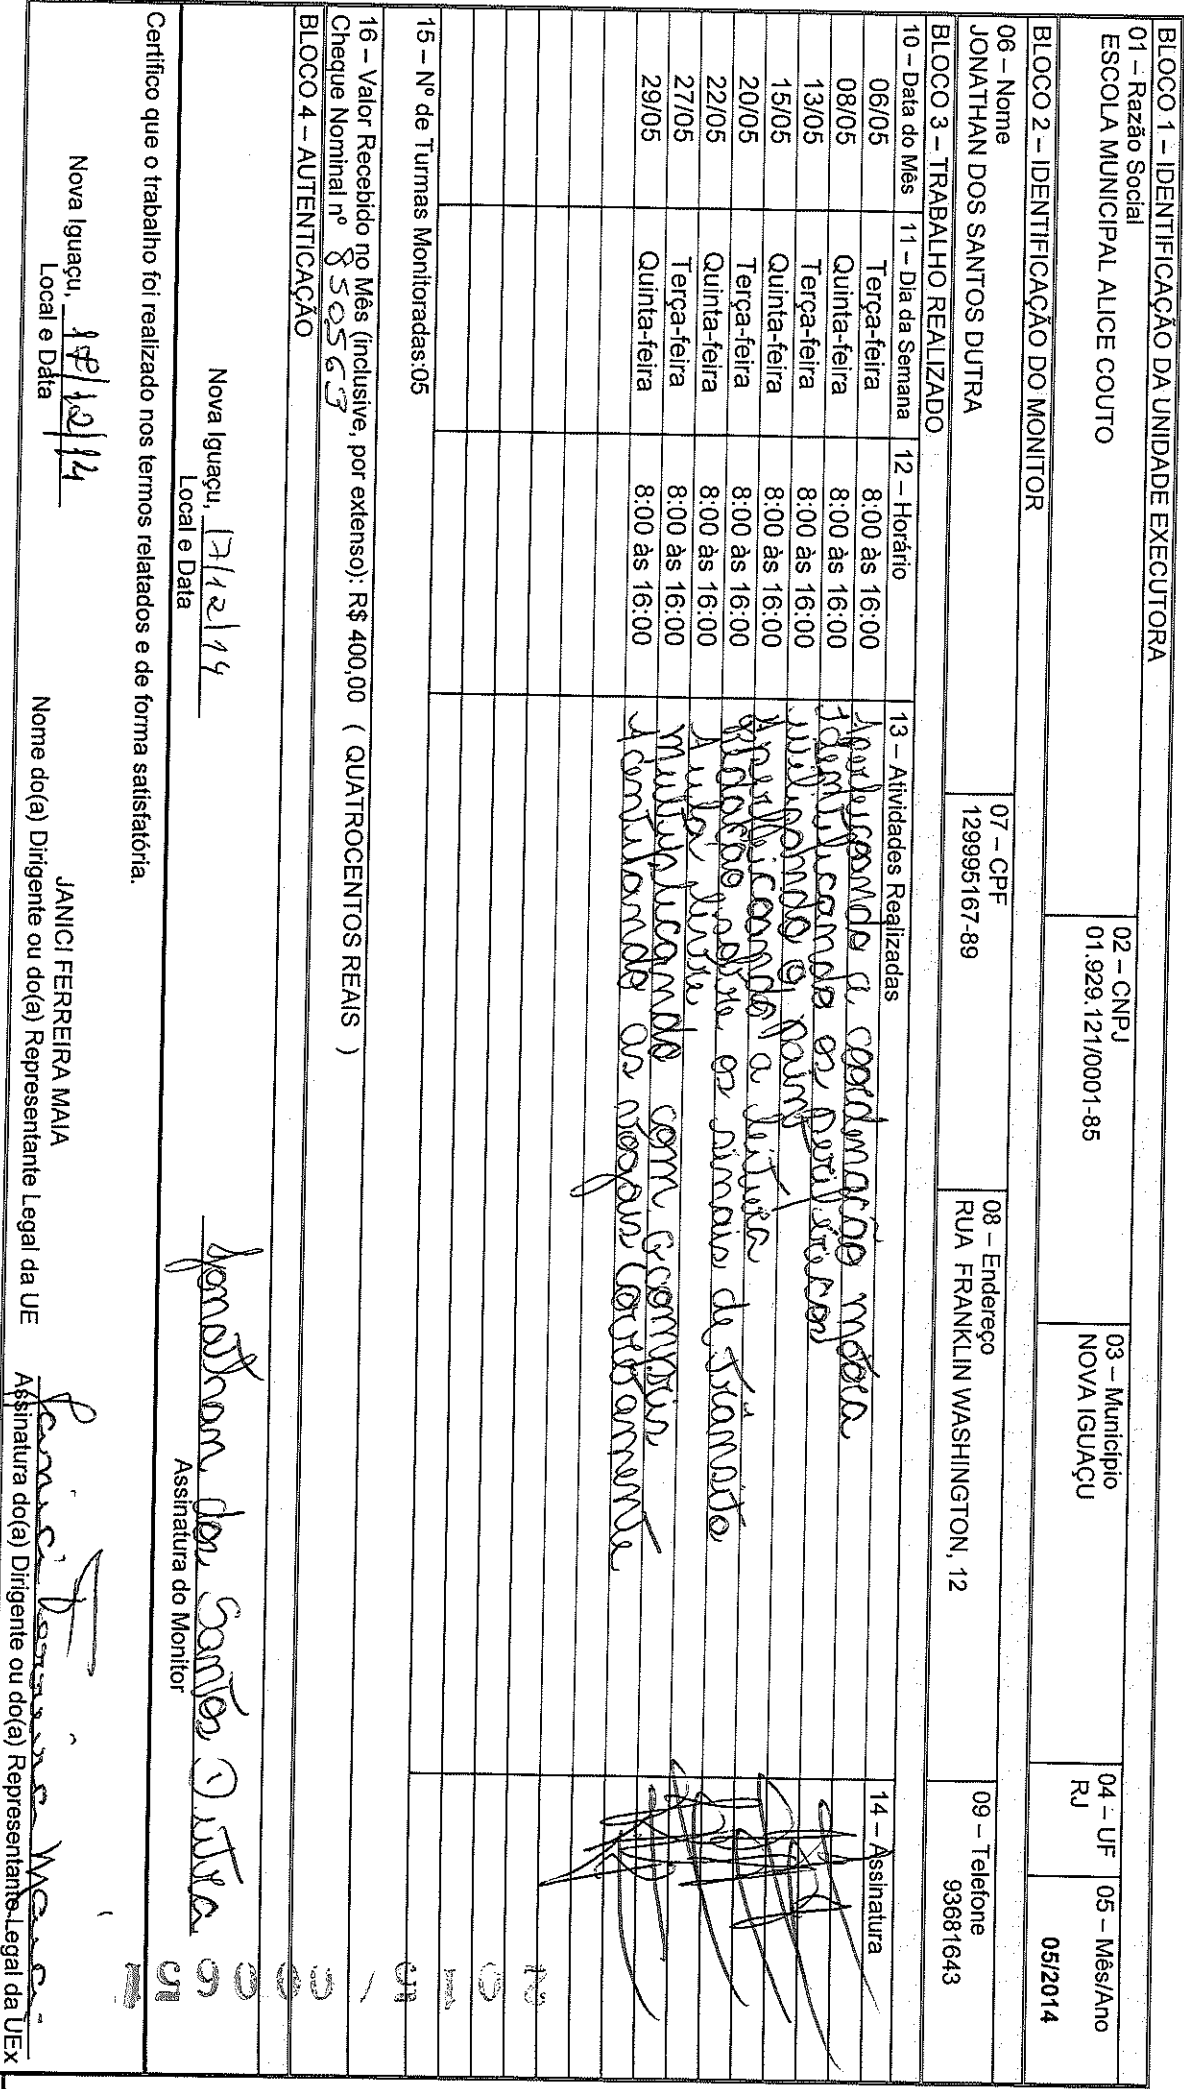 BLOCO 1 – IDENTIFICAÇÃO DA UNIDADE EXECUTORA
01 – Razão Social
ESCOLA MUNICIPAL ALICE COUTO
02 – CNPJ
01.929.121/0001-85
03 – Município
NOVA IGUAÇU
04 – UF
RJ
05 – Mês/Ano
05/2014
BLOCO 2 – IDENTIFICAÇÃO DO MONITOR
06 – Nome
JONATHAN DOS SANTOS DUTRA
07 – CPF
129995167-89
08 – Endereço
RUA FRANKLIN WASHINGTON, 12
09 – Telefone
93681643
BLOCO 3 – TRABALHO REALIZADO
10 – Data do Mês 11 – Dia da Semana 12 – Horário 13 – Atividades Realizadas 14 – Assinatura
06/05 Terça-feira 8:00 às 16:00 Aperfeiçoando a coordenação motora
08/05 Quinta-feira 8:00 às 16:00 Identificando os periféricos
13/05 Terça-feira 8:00 às 16:00 utilizando o paint
15/05 Quinta-feira 8:00 às 16:00 Aperfeiçoando a leitura
20/05 Terça-feira 8:00 às 16:00 Redação sobre os sinais de Trânsito
22/05 Quinta-feira 8:00 às 16:00 Aula livre
27/05 Terça-feira 8:00 às 16:00 Multiplicando com Gcompris
29/05 Quinta-feira 8:00 às 16:00 Acentuando as vogais corretamente
15 – Nº de Turmas Monitoradas:05
16 – Valor Recebido no Mês (inclusive, por extenso): R$ 400,00 ( QUATROCENTOS REAIS )
Cheque Nominal nº 850563
BLOCO 4 – AUTENTICAÇÃO
Nova Iguaçu, 17/12/14
Local e Data
Jonathan dos Santos Dutra
Assinatura do Monitor
Certifico que o trabalho foi realizado nos termos relatados e de forma satisfatória.
Nova Iguaçu, 17/12/14
Local e Data
JANICI FERREIRA MAIA
Nome do(a) Dirigente ou do(a) Representante Legal da UE
Janici Ferreira Maia
Assinatura do(a) Dirigente ou do(a) Representante Legal da UEx
2015/000651